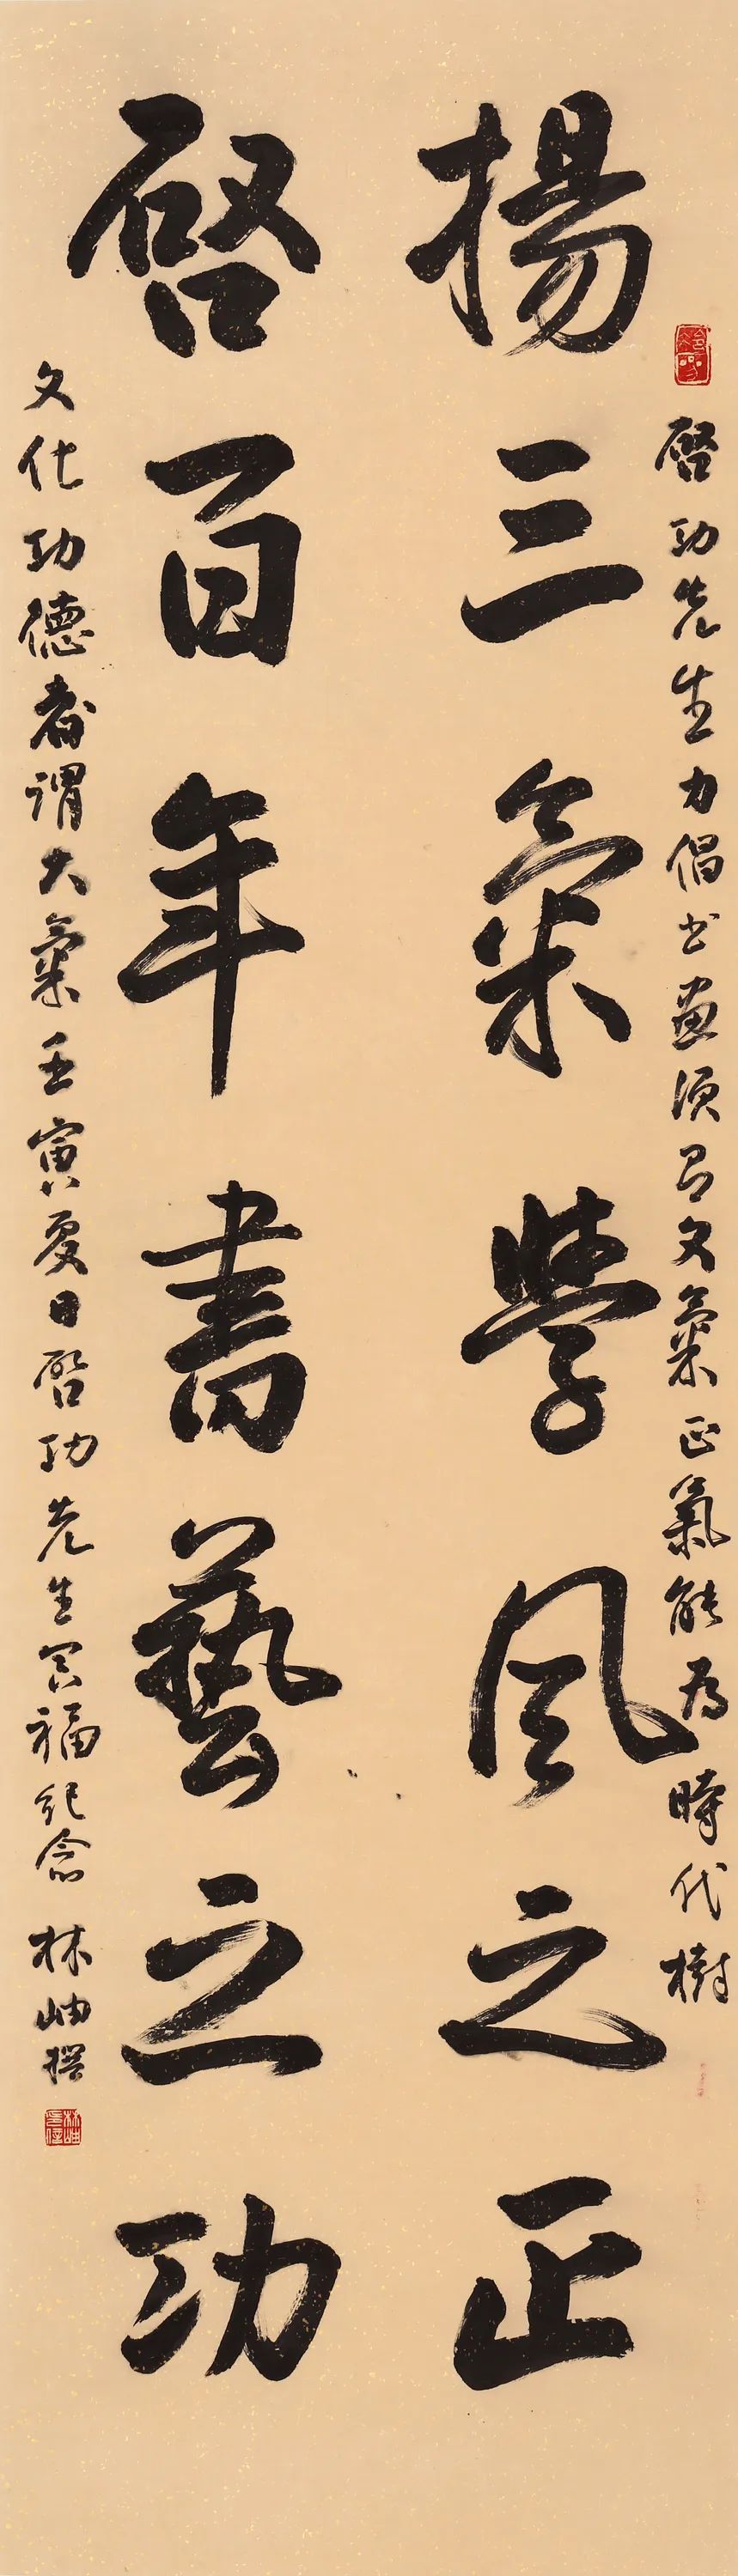 揚三氣學風之正
啓百年書藝之功
啓功先生力倡书畫須有文氣正氣能为時代樹
文化功德者謂大氣壬寅夏日啓功先生冥福纪念 林岫撰
林岫